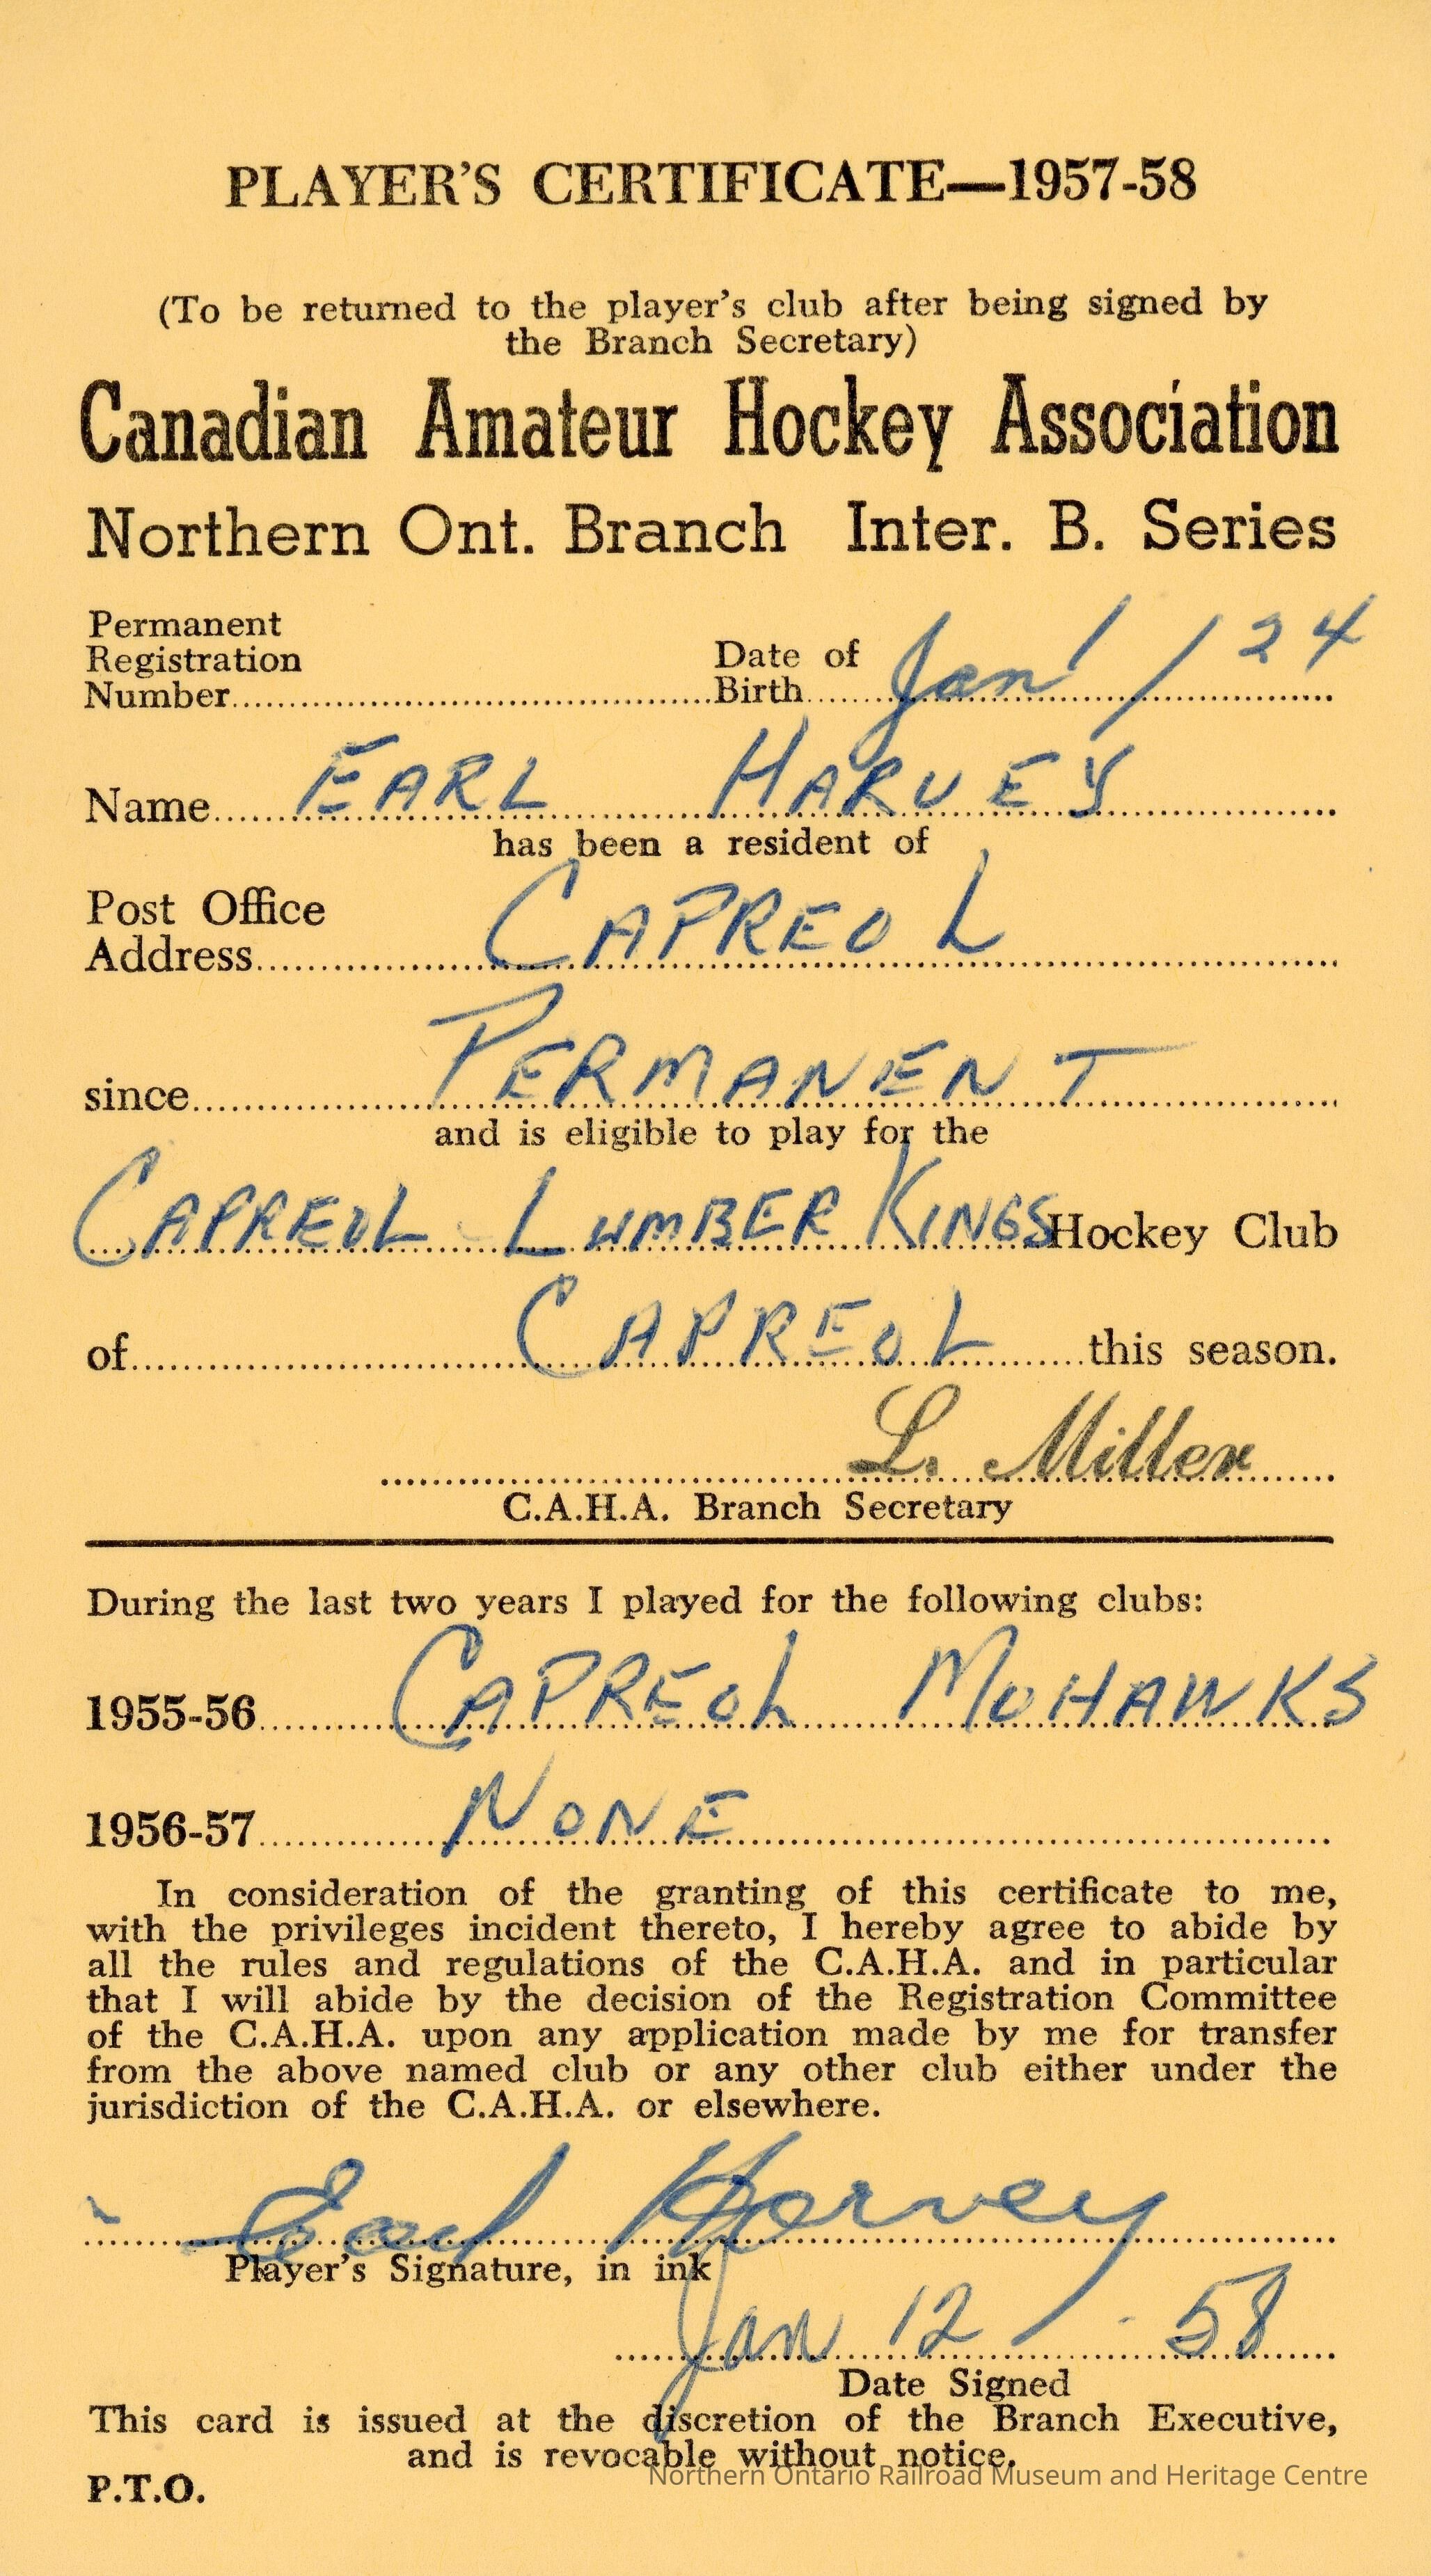 PLAYER'S CERTIFICATE—1957-58
(To be returned to the player's club after being signed by
the Branch Secretary)
Canadian Amateur Hockey Association
Northern Ont. Branch Inter. B. Series
Permanent
Registration
Number
Date of
Birth Jan 1 / 24
Name EARL HARVEY
has been a resident of
Post Office
Address CAPREOL
since PERMANENT
and is eligible to play for the
CAPREOL LUMBER KINGS Hockey Club
of CAPREOL this season.
L. Miller
C.A.H.A. Branch Secretary
During the last two years I played for the following clubs:
1955-56 CAPREOL MOHAWKS
1956-57 NONE
In consideration of the granting of this certificate to me,
with the privileges incident thereto, I hereby agree to abide by
all the rules and regulations of the C.A.H.A. and in particular
that I will abide by the decision of the Registration Committee
of the C.A.H.A. upon any application made by me for transfer
from the above named club or any other club either under the
jurisdiction of the C.A.H.A. or elsewhere.
Earl Harvey
Player's Signature, in ink
Jan 12 / 58
Date Signed
This card is issued at the discretion of the Branch Executive,
and is revocable without notice.
Northern Ontario Railroad Museum and Heritage Centre
P.T.O.